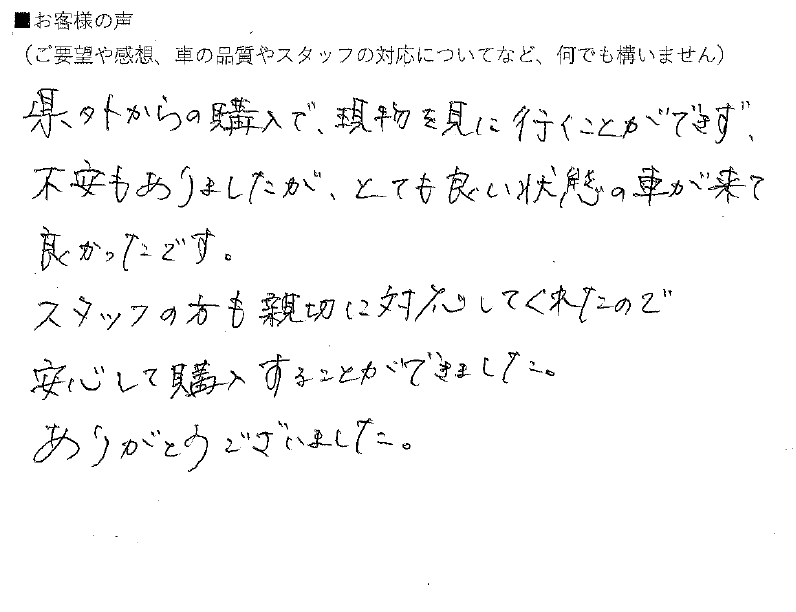 ■お客様の声
（ご要望や感想、車の品質やスタッフの対応についてなど、何でも構いません）
県外からの購入で、現物を見に行くことができず、
不安もありましたが、とても良い状態の車が来て
良かったです。
スタッフの方も親切に対応してくれたので
安心して購入することができました。
ありがとうございました。